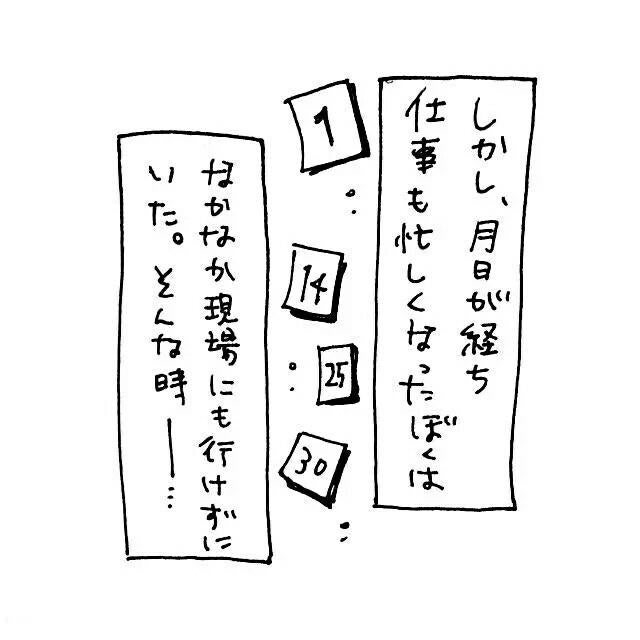 しかし、月日が経ち
仕事も忙しくなったぼくは
1
14
25
30
なかなか現場にも行けずに
いた。そんな時――…